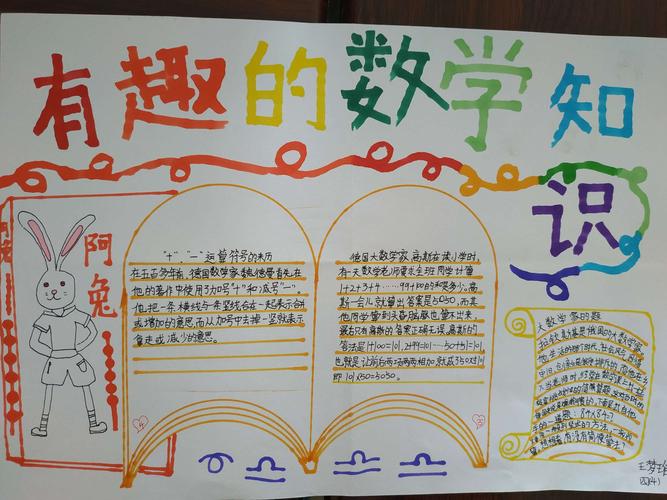 有趣的数学知
识
阿兔
阿兔
"+"、"一"运算符号的来历
在五百多年前,德国数学家魏德曼首先在
他的著作中使用了加号"+"和减号"一"。
他把一条横线与一条竖线合在一起表示合并
或增加的意思,而从加号中去掉一竖就表示
拿走或减少的意思。
德国大数学家高斯在读小学时,
有一天数学老师要求全班同学计算
1+2+3+十……99+100的和是多少。高
斯一会儿就算出答案是5050,而其
他同学算到头昏脑胀也算不出来,
最后只有高斯的答案正确无误,高斯的
算法是1+100=101,2+99=101……50+51=101
也就是让前后两项两两相加,就成了50对101
即101×50=5050.
4
5
大数学家的题
84×84=?
王梦
四(4)